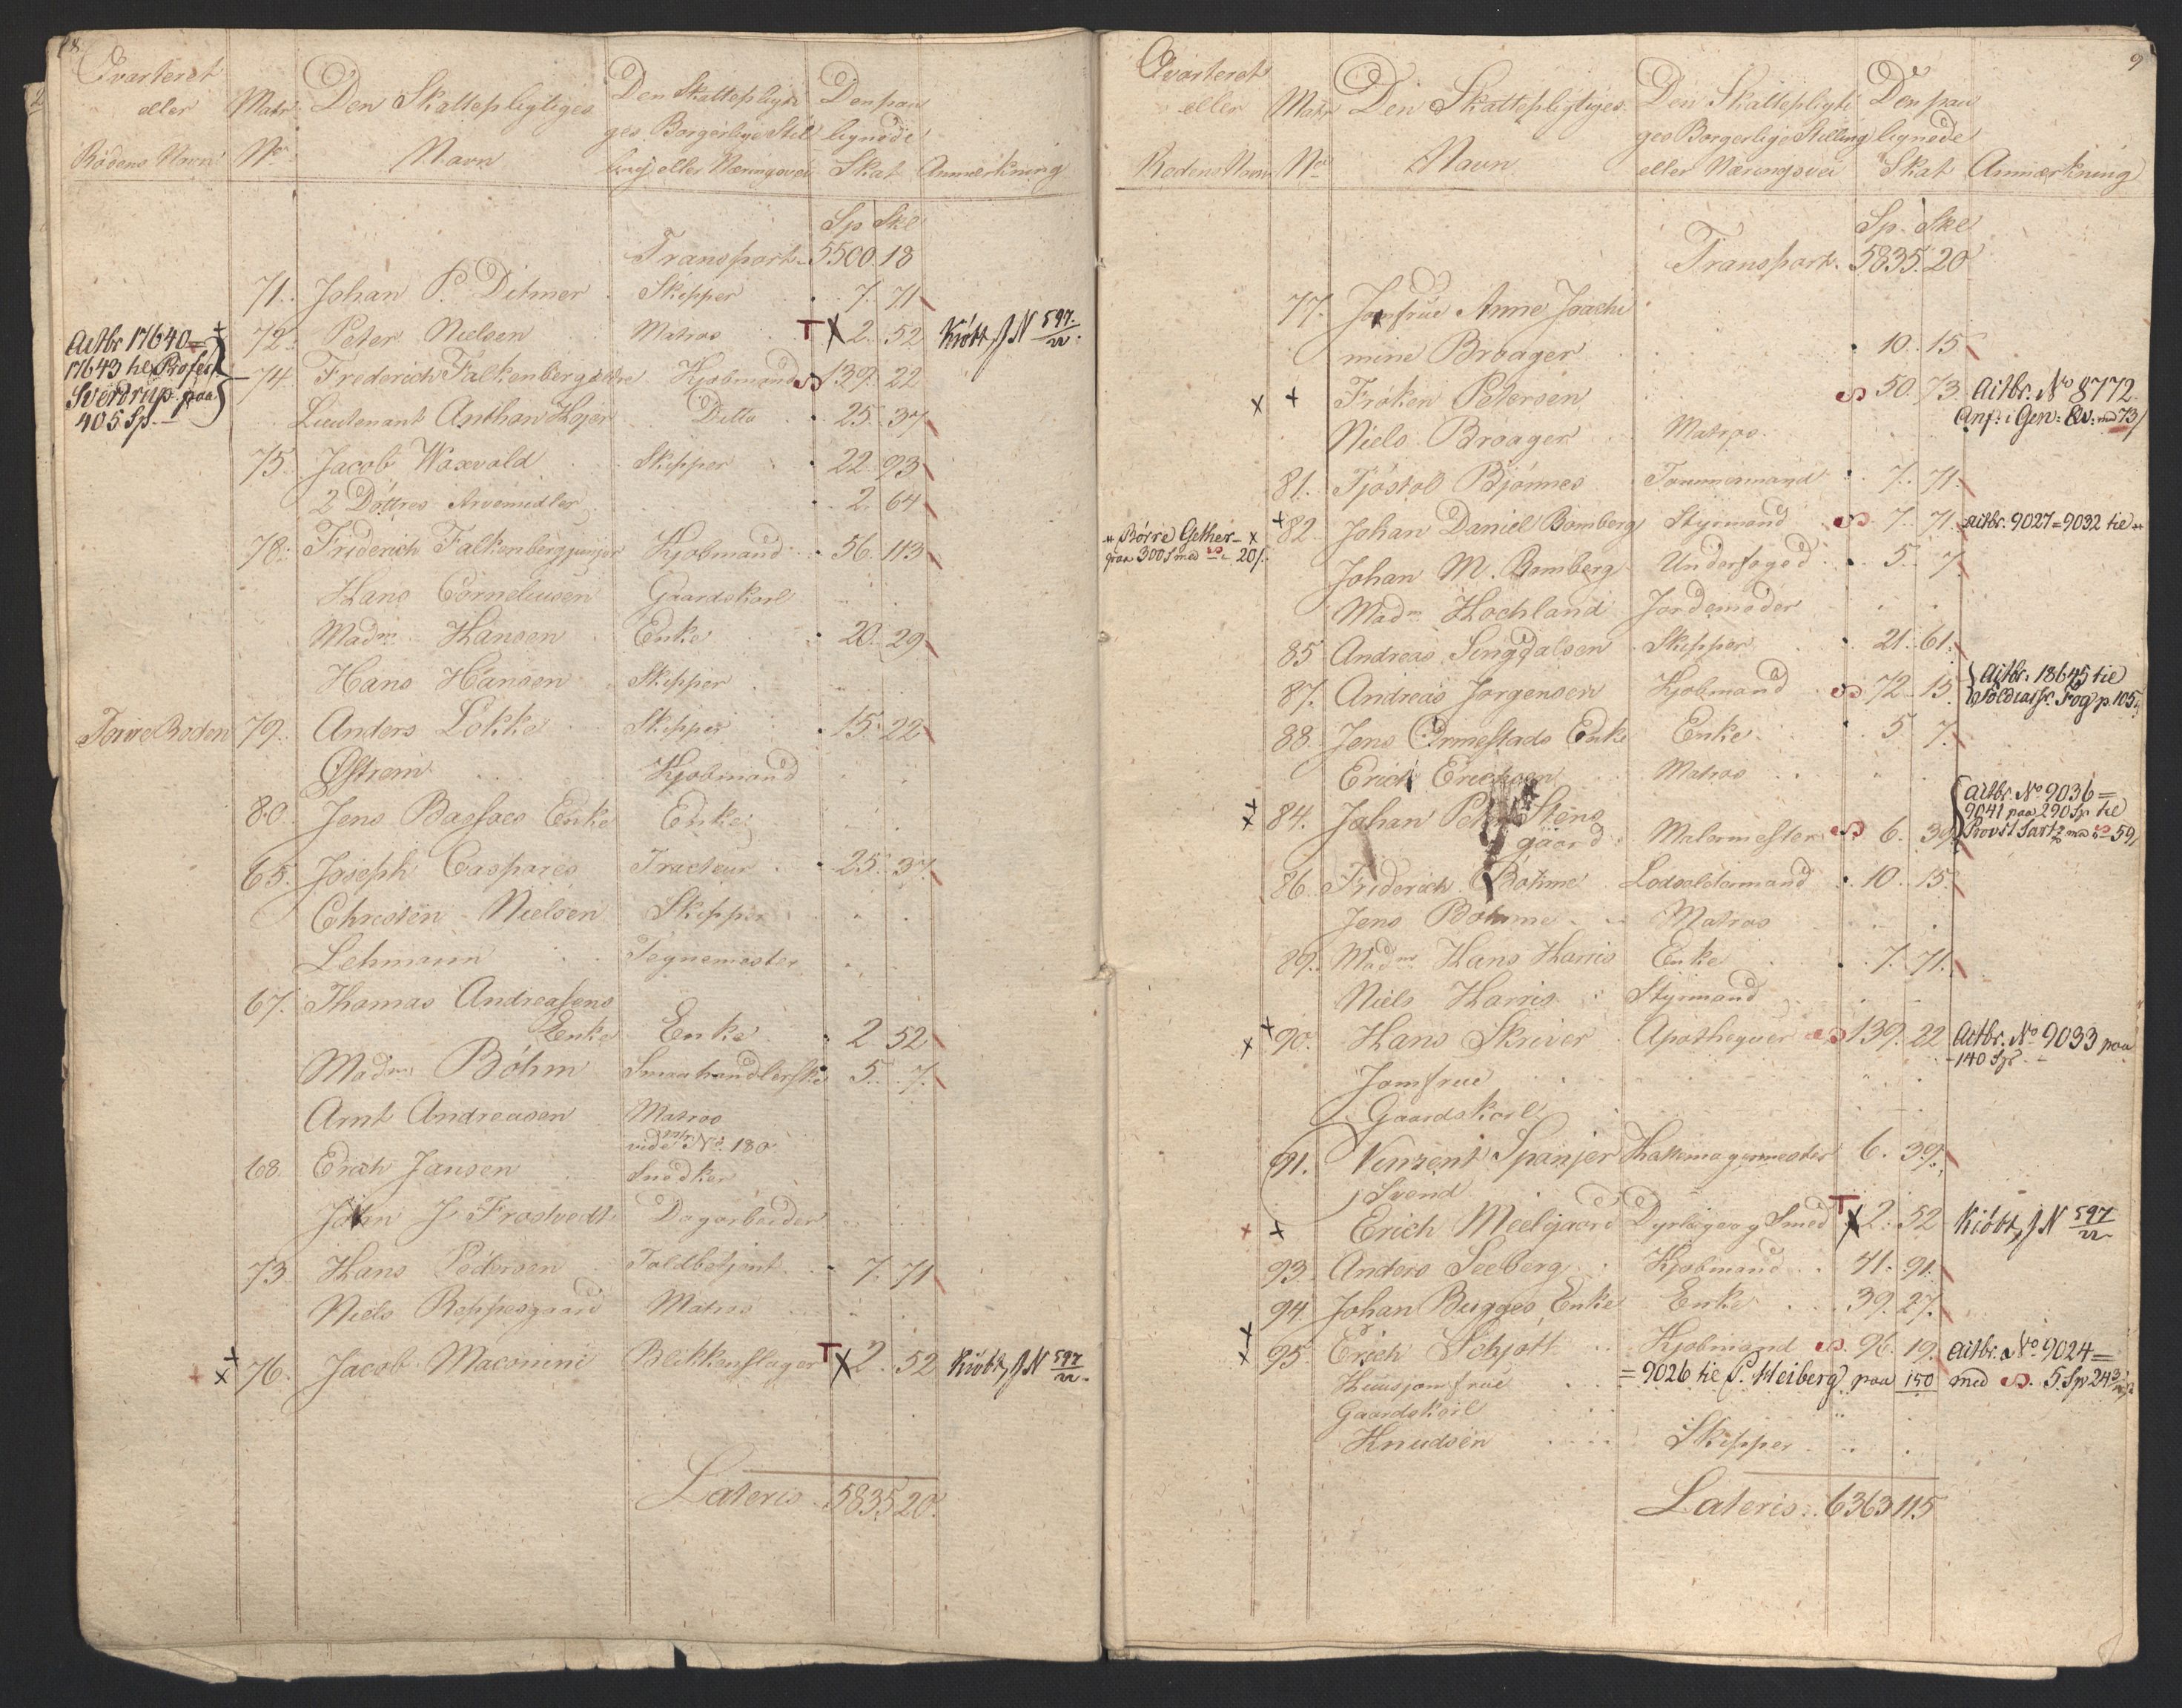 8.
Qvarteret
eller
Rodens Navn
Matr
No
Den Skattepligtiges
Navn
Den Skattepligti
ges Borgerlige Stil
ling eller Næringsvei
Den paa
lignede
Skat
Anmærkning
Sp Skl
Transport 5500. 18
71. Johan P. Ditmer Skipper 7. 71
72. Peter Nielsen Matros T X 2. 52 Kiöbt, JN 597.
74. Frederich Falkenberg ældre Kjöbmand 139. 22
Lieutenant Anthan Hojer Ditto 25. 37
Actbr 17640=
17643 til Profess
Sverdrup paa
405 Sp.
75. Jacob Waxvold Skipper 22. 93
2 Döttres Arvemidler 2. 64
78. Friderich Falkenberg junjor Kjöbmand 56. 113
Hans Corneliusen Gaardskarl
Madm Hansen Enke 20. 29
Hans Hansen Skipper
Torve Roden 79. Anders Lökke Skipper 15. 22
Östrem Kjöbmand
80. Jens Bassöes Enke Enke
65. Joseph Caspares Tracteur 25. 37
Christen Nielsen Skipper
Lehmann Tegnemester
67. Thomas Andreasens
Enke Enke 2 52
Madm Böhm Smaahandlerske 5. 7.
Arnt Andreasen Matros
vide Mtr No. 180
68 Erich Jansen Snedker
John J. Frostvedt Dagarbeider
73 Hans Pedersen Toldbetjent 7. 71
Niels Reppesgaard Matros
+ x 76. Jacob Maconini Blikkenslager T X 2. 52 Kiöbt, JN 597
Lateris 5835 20.
9
Qvarteret
eller
Rodens Navn
Matr
No
Den Skattepligtiges
Navn
Den Skattepligti
ges Borgerlige Stilling
eller Næringsvei
Den paa
lignede
Skat
Anmærkning
Sp. Skl
Transport. 5835. 20
77. Jomfrue Anne Joachi
mine Broager 10. 15
x + Fröken Petersen 50. 73. Actbr. No 8772
Anf: i Gen: Qv: med 73/
Niels Broager Matros
81. Tjöstol Bjönnes Tömmermand 7. 71.
+ 82 Johan Daniel Bomberg Styrmand 7. 71. actbr. 9027=9032 til
Börre Gether x
paa 300 S med 20/.
Johan M. Bomberg Underfoged 5. 7.
Madm Hochland Jordemoder
85 Andreas Singdalsen Skipper 21. 61.
87. Andreas Jorgensen Kjöbmand 72. 15 Actbr. 18645 til
Toldcass: Fog p. 105
88. Jens Ormestads Enke Enke 5 7.
Erich Erichsen Matros
84. Johan Peter Stens
gaard Malermester 6. 39
actbr. No 9036=
9041 paa 290 Sp til
Provst Sartz med 59/
86. Friderich Böhme Lodsoldermand 10. 15.
Jens Böhme Matros
89. Madm Hans Harris Enke 7. 71.
Niels Harris Styrmand
x 90. Hans Skriver Apothequer 139. 22 Actbr. No 9033 paa
140 Sp.
Jomfrue
Gaardskarl
91. Vinzent Spanjer Hattemagermester 6. 39.
1 Svend
+ x Erich Meelgaard Dyrlæge og Smed T X 2. 52 Kiöbt, JN 597
93. Anders Seeberg Kjöbmand 41. 91.
94. Johan Bugges Enke Enke 39. 27.
x 95. Erich Schjött Kjöbmand 96. 19. actbr. No. 9024=
Huusjomfrue =9026 til P. Heiberg paa 150 med 5 Sp 24
Gaardskarl
Knudsen Skipper
Lateris. 6363 115